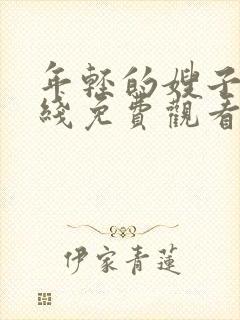 年轻的嫂子
綫免費觀看
伊家青蓮